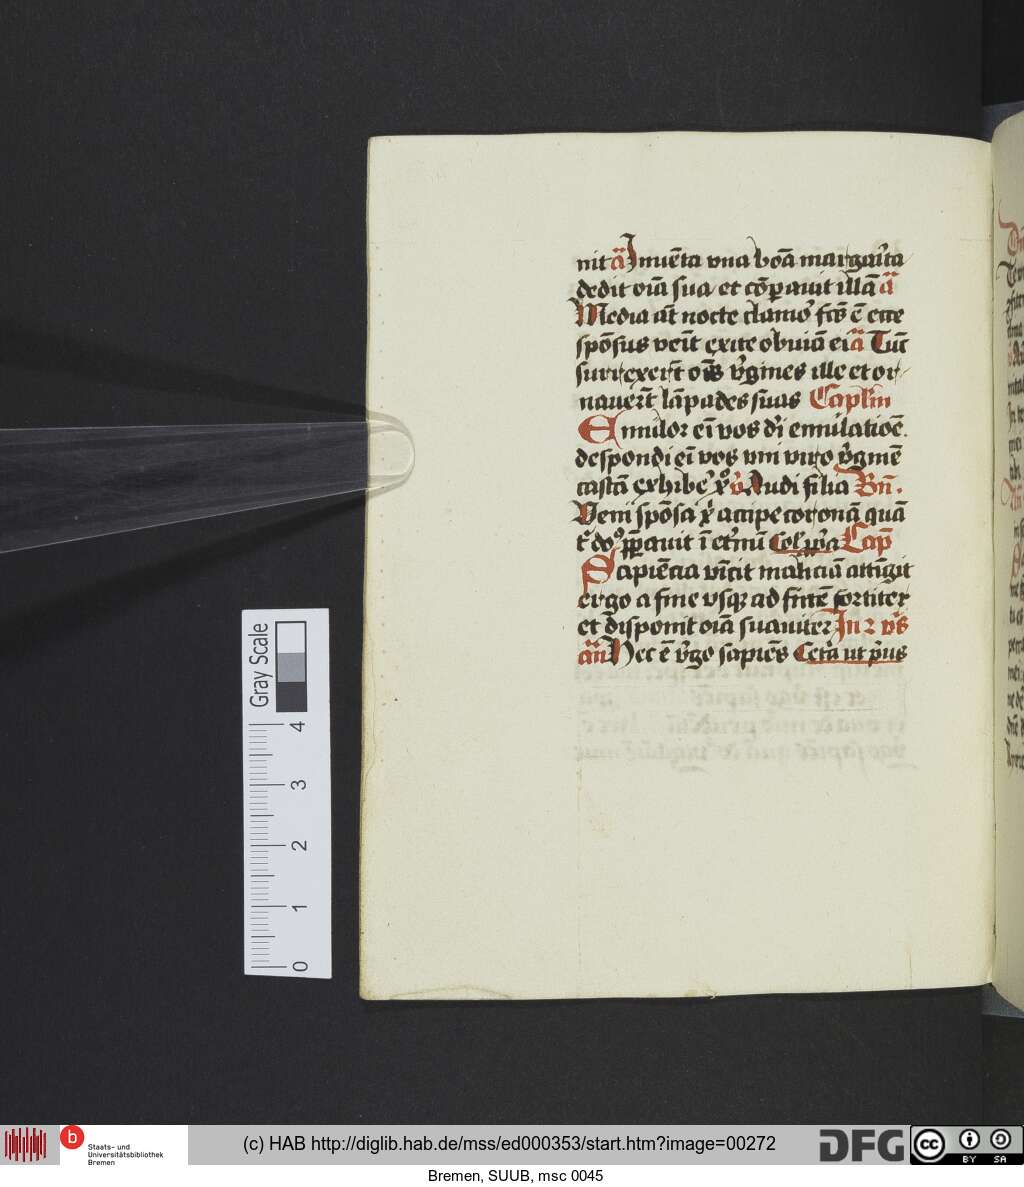 nit a̅ Inue̅ta vna boa̅ margari̅ta
dedit oi̅a sua et co̅parauit illa̅ a̅
Media aut̅ nocte clamor fc̅s e̅ ecce
spo̅sus veit̅ exite obuia̅ ei a̅ Tu̅c
surrexer̅t oe̅s v̅gines ille et or
nauer̅t la̅pades suas Caplm̅
Emulor ei̅ vos di̅ emulatioe̅.
despondi ei̅ vos vni viro v̅gine̅
casta̅ exhibe' xo̅ v̅ Audi filia Bn̅.
Veni spo̅sa x̅ accipe corona̅ qua̅
t̅ do̅ p̅parauit i̅ et'nu̅ Col' pri̅a Cap̅
Sapie̅cia vi̅cit malicia̅ atti̅git
ergo a fine vsqꝫ ad fine̅ fortiter
et disponit oi̅a suauiter In 2 v̅s
an̅ Hec e̅ v̅go sapie̅s Cet'a ut p̅us
Gray Scale
4
3
2
1
0
b
Staats- und
Universitätsbibliothek
Bremen
(c) HAB http://diglib.hab.de/mss/ed000353/start.htm?image=00272
DFG
cc
BY SA
Bremen, SUUB, msc 0045